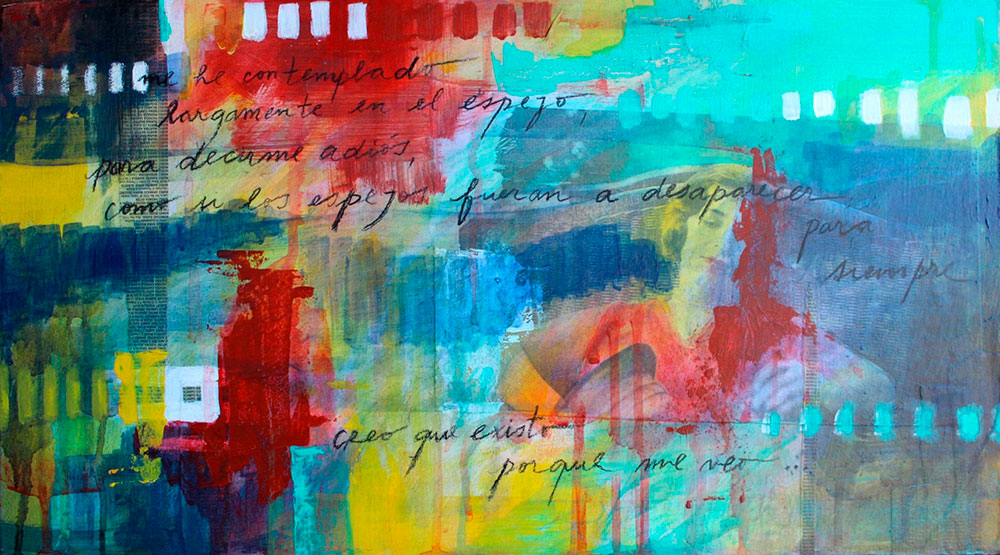 me he contemplado
largamente en el espejo,
para decirme adiós,
como si los espejos fueran a desaparecer
para
siempre
creo que existo
porque me veo...